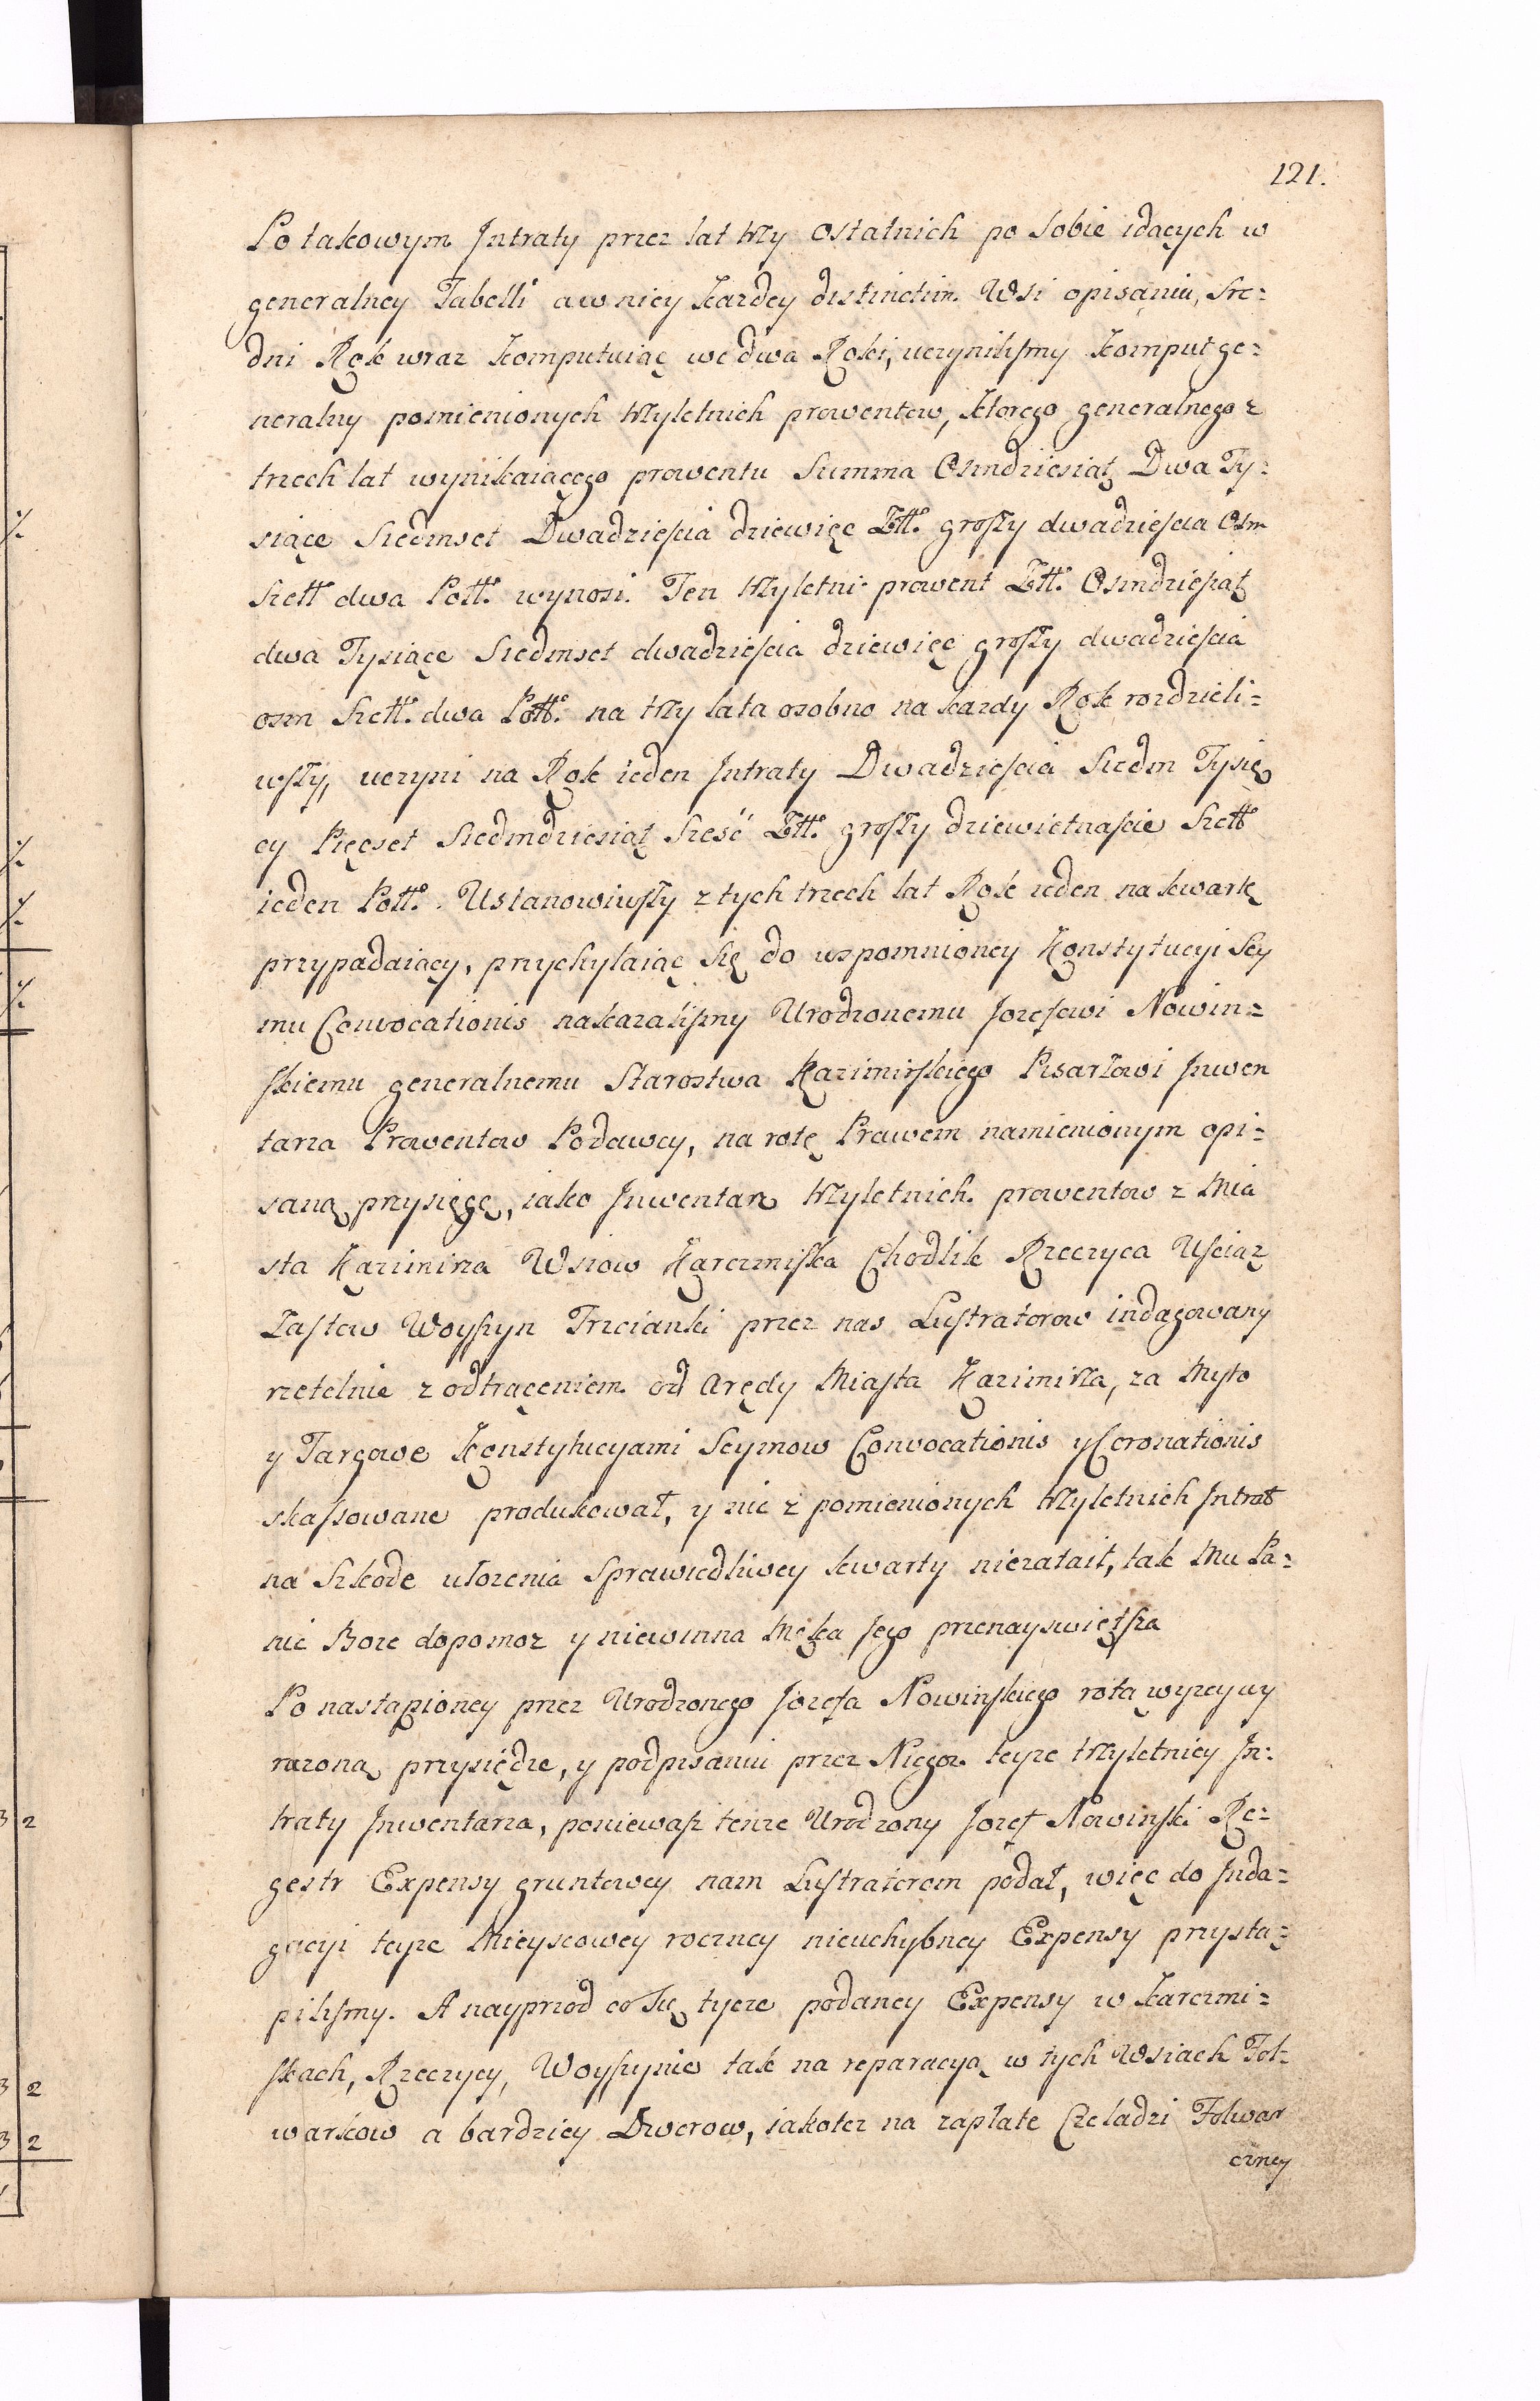 121.
Po takowym Jntraty przez lat trzy ostatnich po sobie idących w
generalney Tabelli a w niey każdey distinctim Wsi opisaniu, Sre=
dni Rok wraz komputuiąc we dwa Roki, uczyniliſmy komput ge=
neralny pomienionych trzyletnich prowentow, ktorego generalnego z
trzech lat wynikaiącego prowentu Summa Osmdziesiąt Dwa Ty=
siące Siedmset Dwadzieſcia dziewięc Złł. groſzy dwadzieſcia Osm
Szełł dwa Poll. wynosi. Ten trzyletni prowent Złł. Osmdzieſiąt
dwa Tysiące Siedmset dwadzieſcia dziewięc groſzy dwadzieſcia
osm Szełł. dwa Poll. na trzy lata osobno na kazdy Rok rozdzieli=
wſzy, uczyni na Rok ieden Jntraty Dwadzieſcia Siedm Tysię
cy Pięcset Siedmdziesiąt Sześć Złł. groſzy dziewietnaſcie Szełł
ieden Poll. Ustanowiwſzy z tych trzech lat Rok ieden na kwartę
przypadaiący, przychylaiąc się do wspomnioney Konstytucyi Sey
mu Convocationis nakazaliſmy Urodzonemu Jozefowi Nowin=
ſkiemu generalnemu Starostwa Kazimirſkiego Pisarzowi Jnwen
tarza Prowentow Podawcy, na rotę Prawem namienionym opi=
saną przysięgę, iako Jnwentarz trzyletnich prowentow z Mia
sta Kazimirza Wsiow Karczmiſka Chodlik Rzeczyca Uſciąz
Zaſtow Woyſzyn Trzcianki przez nas Luſtratorow indagowany
rzetelnie z odtrąceniem od Arędy Miaſta Kazimirza, za Myto
y Targowe Konstytucyami Seymow Convocationis y Coronationis
skaſsowane produkował, y nic z pomienionych trzyletnich Jntrat
na Szkodę ułozenia Sprawiedliwey kwarty niezataił, tak mu Pa=
nie Boze dopomoz y niewinna Męka Jego przenayswiętſza
Po nastąpioney przez Urodzonego Jozefa Nowinſkiego rotą wyzey wy
razoną przysiędze, y podpisaniu przez Niego teyze trzyletniey Jn=
traty Jnwentarza, poniewaſz tenze Urodzony Jozef Nowinſki Re=
gestr Expensy gruntowey nam Luſtratorom podał, więc do Jnda=
gacyi teyze Mieyscowey roczney nieuchybney Expensy przystą=
piliſmy. A nayprzod co się tycze podaney Expensy w Karczmi=
ſkach, Rzeczycy, Woyſzynie tak na reparacyą w tych Wsiach Fol=
warkow a bardziey Dworow, iakotez na zapłate Czeladzi Folwar
czney